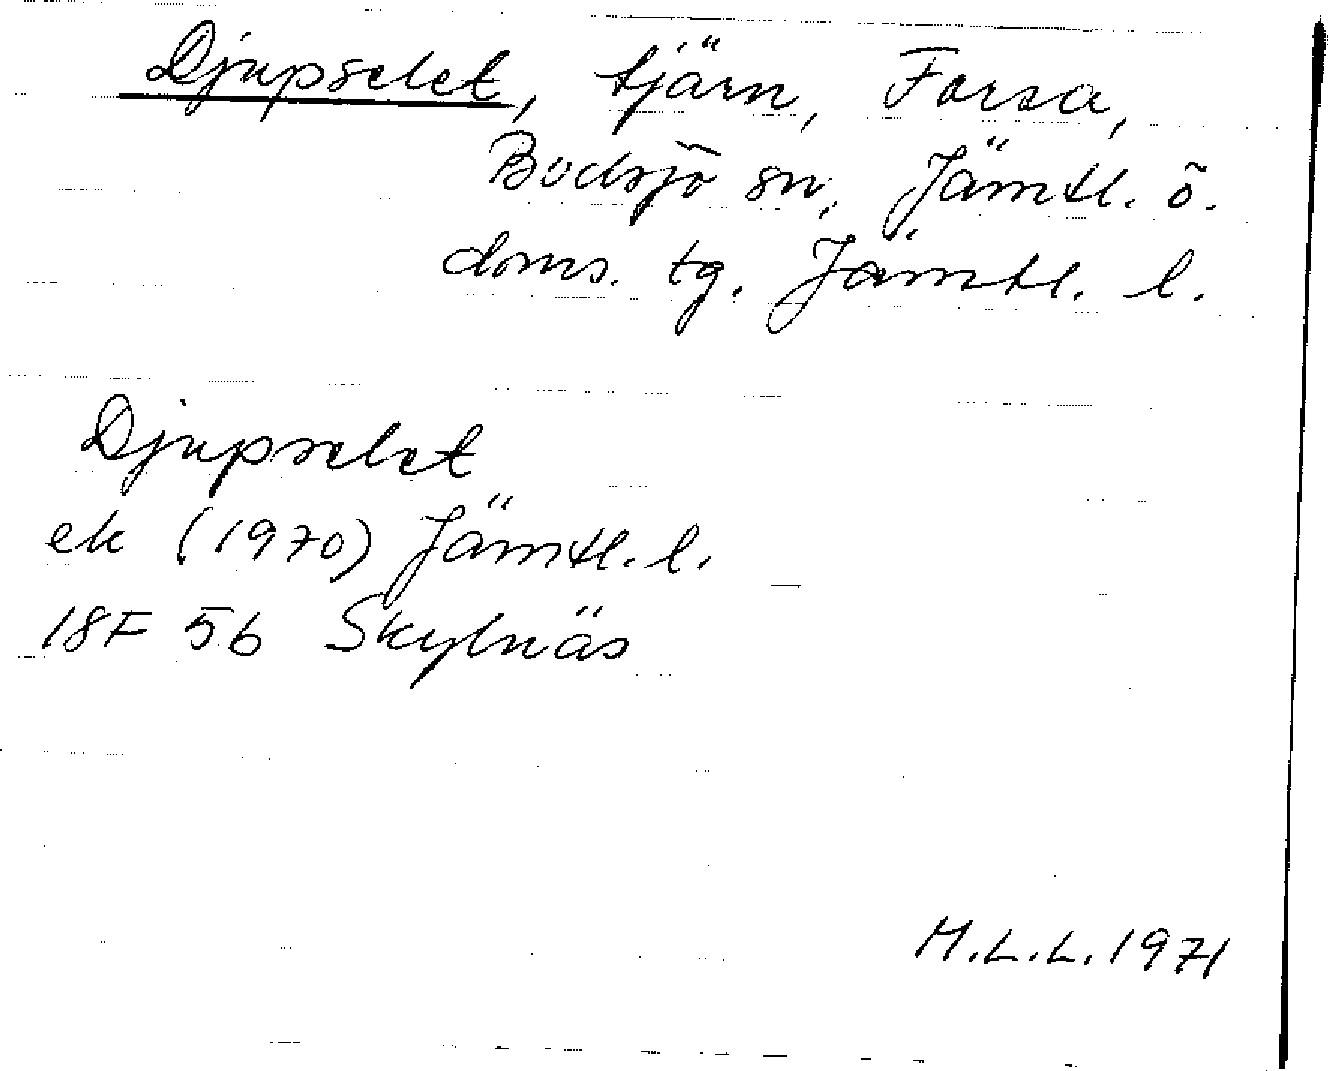 Djupselet, tjärn, Forsa,
Bodsjö sn, Jämtl. ö.
doms. tg. Jämtl. l.
Djupselet
ek (1970) Jämtl. l.
18F 5b Skylnäs
H.L.L. 1971